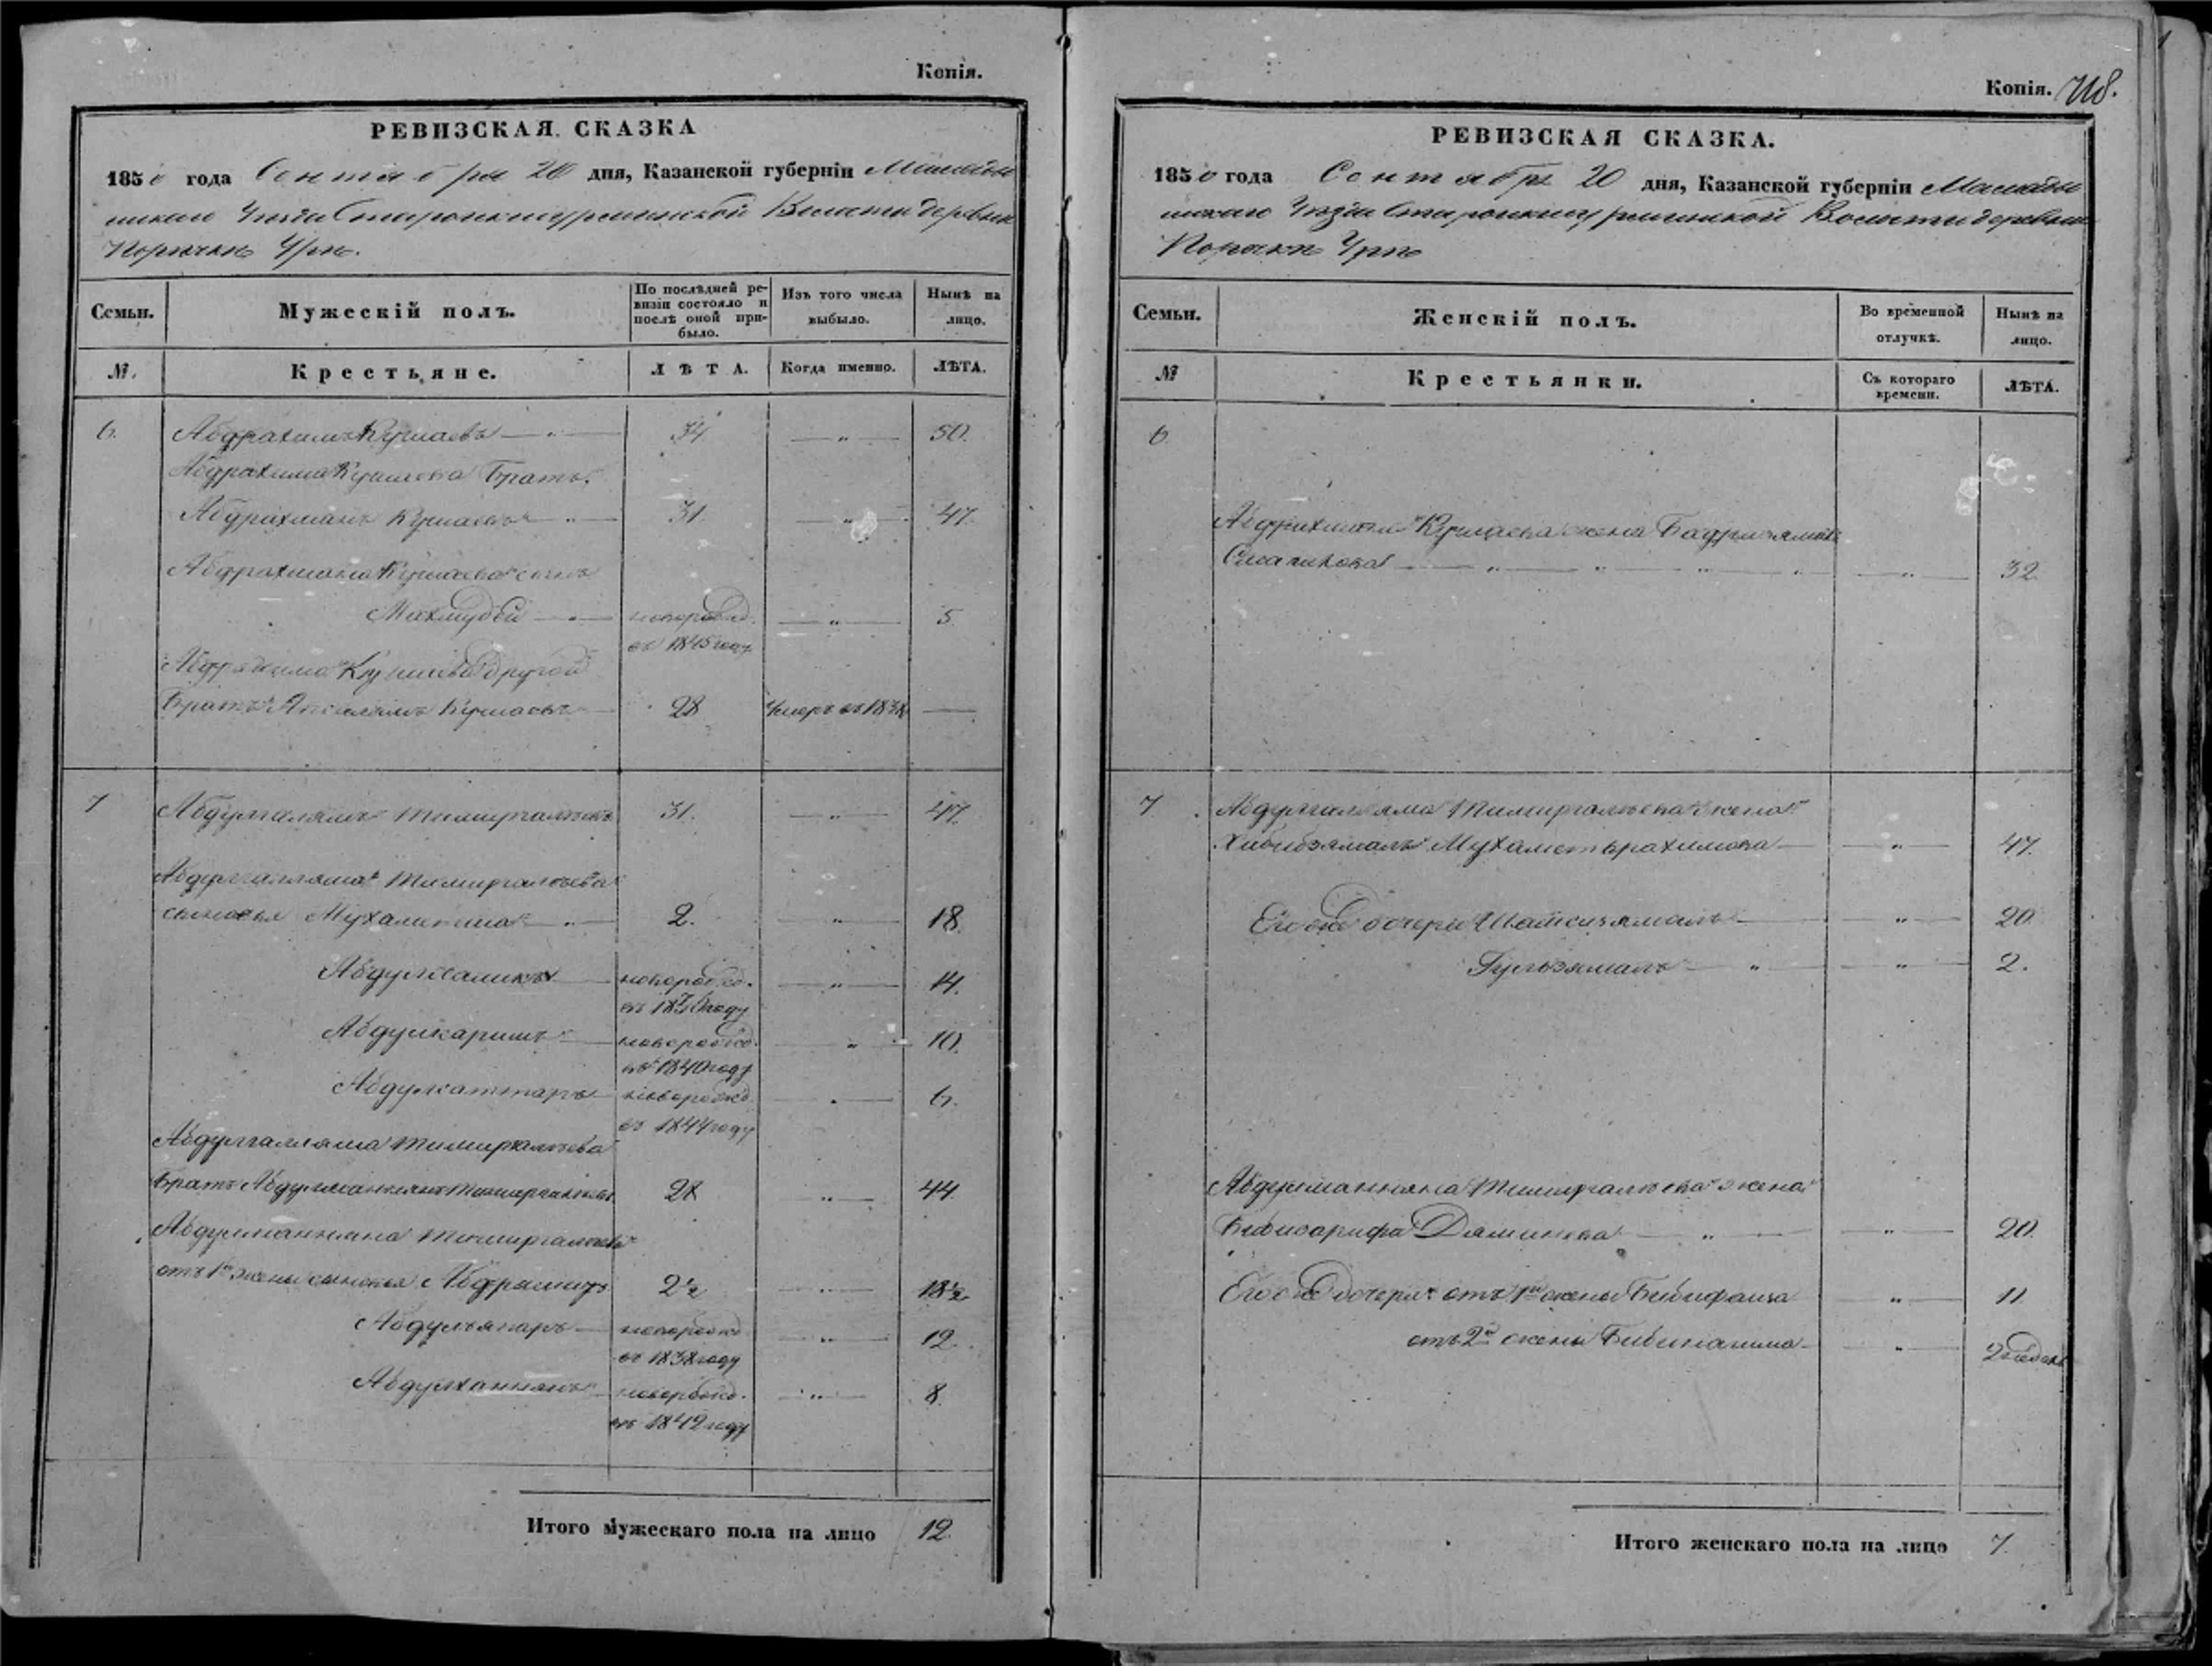 Копія.
РЕВИЗСКАЯ СКАЗКА
1850 года Сентября 20 дня, Казанской губерніи Мамады
шскаго Уѣзда Старокнязурминской Волости деревни
Урѣ.
Семьи.
Мужескій полъ.
По послѣдней ре-
визіи состояло и
послѣ оной при-
было.
Изъ того числа
выбыло.
Нынѣ на
лицо.
№.
Крестьяне.
ЛѢТА.
Когда именно.
ЛѢТА.
6. Абдрахимъ Кучаевъ — " — 34 — " — 50.
Абдрахима Кучаева Братъ
Абдрахманъ Кучаевъ — " — 31 — " — 47.
Абдрахмана Кучаева сынъ
Махмудей — " — новорожд. — " — 5
въ 1845 году
Абдрахима Кучаева другой
Братъ Кучаевъ — 28 Умеръ въ 1838 —
7 Абдулгалямъ Тимиргалѣевъ 31. — " — 47.
Абдулгалляма Тимиргалѣева
сыновья Мухаметша — " — 2. — " — 18.
Абдулхаликъ — новорожд. — " — 14.
въ 1836 году
Абдулкаримъ — новорожд. — " — 10.
въ 1840 году
Абдулсаттаръ — новорожд. — " — 6.
въ 1844 году
Абдулгалляма Тимиргалѣева
Братъ Абдулманнянъ Тимиргалѣевъ 28 — " — 44.
Абдулманняна Тимиргалѣева
отъ 1й жены сыновья Абдрашитъ 2½ — " — 18½
Абдулъяпаръ — новорожд. — " — 12.
въ 1838 году
Абдулханнянъ — новорожд. — " — 8.
въ 1842 году
Итого мужескаго пола на лицо 12.
Копія. 718.
РЕВИЗСКАЯ СКАЗКА.
1850 года Сентября 20 дня, Казанской губерніи Мамады
шскаго Уѣзда Старокнязурминской Волости деревни
Урѣ
Семьи.
Женскій полъ.
Во временной
отлучкѣ.
Нынѣ на
лицо.
№
Крестьянки.
Съ котораго
времени.
ЛѢТА.
6
Абдрахмана Кучаева жена Бадризямалъ
— " — " — " — " — " — 32.
7. Абдулгалляма Тимиргалѣева жена
Хабибзямалъ Мухаметьрахимова — — " — 47.
Его же дочери Шамсизямалъ — — " — 20.
Гульзямалъ — " — — " — 2.
Абдулманняна Тимиргалѣева жена
Бибисарифа Даминова — " — — " — 20.
Его же дочери отъ 1й жены Бибифаиза — " — 11
отъ 2й жены — " — 2 недель
Итого женскаго пола на лицо 7.